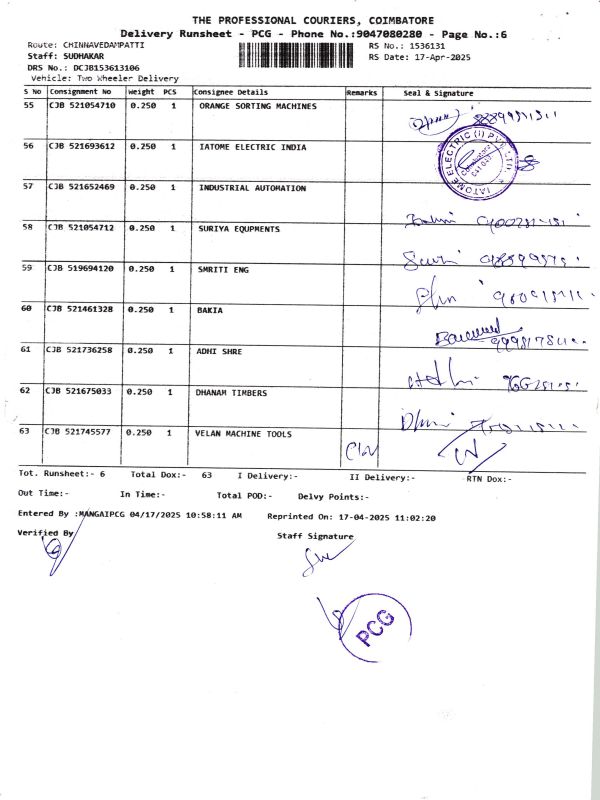 THE PROFESSIONAL COURIERS, COIMBATORE
Delivery Runsheet - PCG - Phone No.:9047080280 - Page No.:6
Route: CHINNAVEDAMPATTI RS No.: 1536131
Staff: SUDHAKAR RS Date: 17-Apr-2025
DRS No.: DCJB153613106
Vehicle: Two Wheeler Delivery
S No Consignment No Weight PCS Consignee Details Remarks Seal & Signature
55 CJB 521054710 0.250 1 ORANGE SORTING MACHINES
56 CJB 521693612 0.250 1 IATOME ELECTRIC INDIA
IATOME ELECTRIC (I) PVT. LTD.
Coimbatore
641 047
57 CJB 521652469 0.250 1 INDUSTRIAL AUTOMATION
58 CJB 521054712 0.250 1 SURIYA EQUPMENTS
59 CJB 519694120 0.250 1 SMRITI ENG
60 CJB 521461328 0.250 1 BAKIA
61 CJB 521736258 0.250 1 ADHI SHRE
62 CJB 521675033 0.250 1 DHANAM TIMBERS
63 CJB 521745577 0.250 1 VELAN MACHINE TOOLS
Tot. Runsheet:- 6 Total Dox:- 63 I Delivery:- II Delivery:- RTN Dox:-
Out Time:- In Time:- Total POD:- Delvy Points:-
Entered By :MANGAIPCG 04/17/2025 10:58:11 AM Reprinted On: 17-04-2025 11:02:20
Verified By Staff Signature
PCG